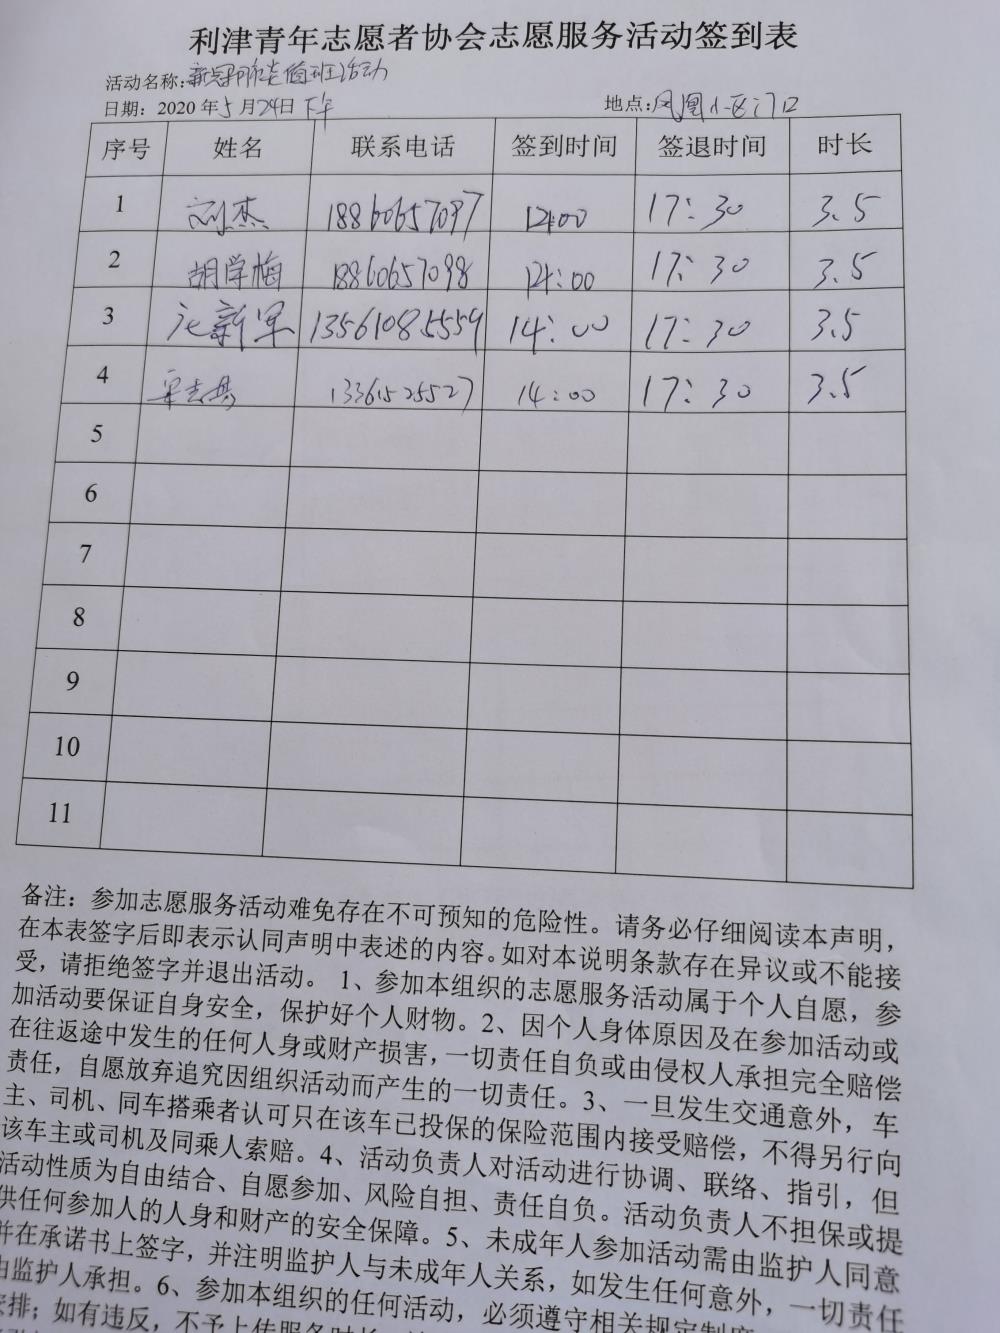 利津青年志愿者协会志愿服务活动签到表
活动名称:新冠肺炎值班活动
日期: 2020年5月24日下午 地点:凤凰小区门口
序号 姓名 联系电话 签到时间 签退时间 时长
1 刘杰 18860657097 14:00 17:30 3.5
2 胡学梅 18860657098 14:00 17:30 3.5
3 新军 13561085559 14:00 17:30 3.5
4 13361525527 14:00 17:30 3.5
5
6
7
8
9
10
11
备注：参加志愿服务活动难免存在不可预知的危险性。请务必仔细阅读本声明，
在本表签字后即表示认同声明中表述的内容。如对本说明条款存在异议或不能接
受，请拒绝签字并退出活动。 1、参加本组织的志愿服务活动属于个人自愿，参
加活动要保证自身安全，保护好个人财物。2、因个人身体原因及在参加活动或
在往返途中发生的任何人身或财产损害，一切责任自负或由侵权人承担完全赔偿
责任，自愿放弃追究因组织活动而产生的一切责任。3、一旦发生交通意外，车
主、司机、同车搭乘者认可只在该车已投保的保险范围内接受赔偿，不得另行向
该车主或司机及同乘人索赔。4、活动负责人对活动进行协调、联络、指引，但
活动性质为自由结合、自愿参加、风险自担、责任自负。活动负责人不担保或提
供任何参加人的人身和财产的安全保障。5、未成年人参加活动需由监护人同意
并在承诺书上签字，并注明监护人与未成年人关系，如发生任何意外，一切责任
由监护人承担。6、参加本组织的任何活动，必须遵守相关规定制度
安排；如有违反，不予上传服务时长